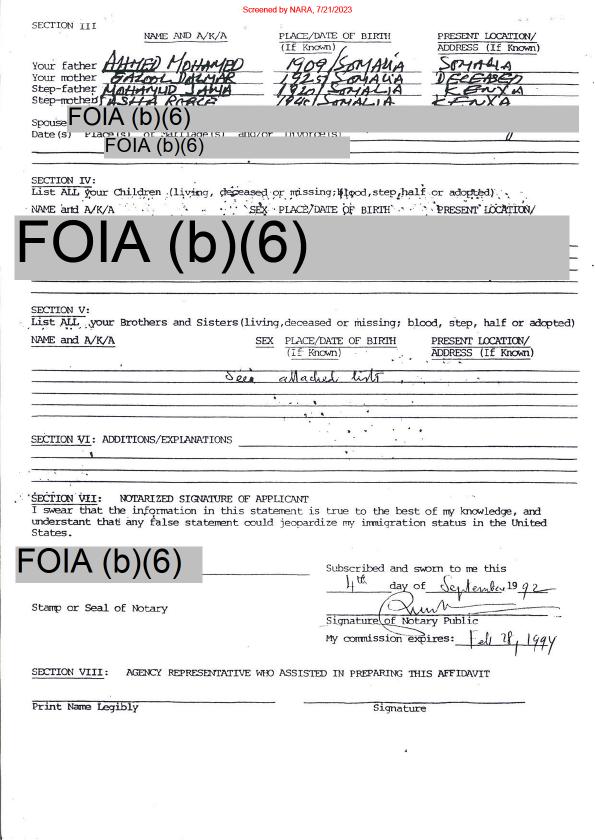 Screened by NARA, 7/21/2023
SECTION III
NAME AND A/K/A PLACE/DATE OF BIRTH (If Known) PRESENT LOCATION/ ADDRESS (If Known)
Your father AHMED MOHAMED 1909/SOMALIA SOMALIA
Your mother DALMAR 1925/SOMALIA DECEASED
Step-father MOHAMUD JAMA 1920/SOMALIA KENYA
Step-mother ASHA 1940/SOMALIA KENYA
Spouse FOIA (b)(6)
Date(s) Place(s) of Marriage(s) and/or Divorce(s)
FOIA (b)(6)
SECTION IV:
List ALL your Children (living, deceased or missing; blood, step, half or adopted)
NAME and A/K/A SEX PLACE/DATE OF BIRTH PRESENT LOCATION/
FOIA (b)(6)
SECTION V:
List ALL your Brothers and Sisters (living, deceased or missing; blood, step, half or adopted)
NAME and A/K/A SEX PLACE/DATE OF BIRTH (If Known) PRESENT LOCATION/ ADDRESS (If Known)
See attached list
SECTION VI: ADDITIONS/EXPLANATIONS
SECTION VII: NOTARIZED SIGNATURE OF APPLICANT
I swear that the information in this statement is true to the best of my knowledge, and
understand that any false statement could jeopardize my immigration status in the United
States.
FOIA (b)(6)
Subscribed and sworn to me this
4th day of September 1992
Stamp or Seal of Notary
Signature of Notary Public
My commission expires: Feb 28, 1994
SECTION VIII: AGENCY REPRESENTATIVE WHO ASSISTED IN PREPARING THIS AFFIDAVIT
Print Name Legibly Signature